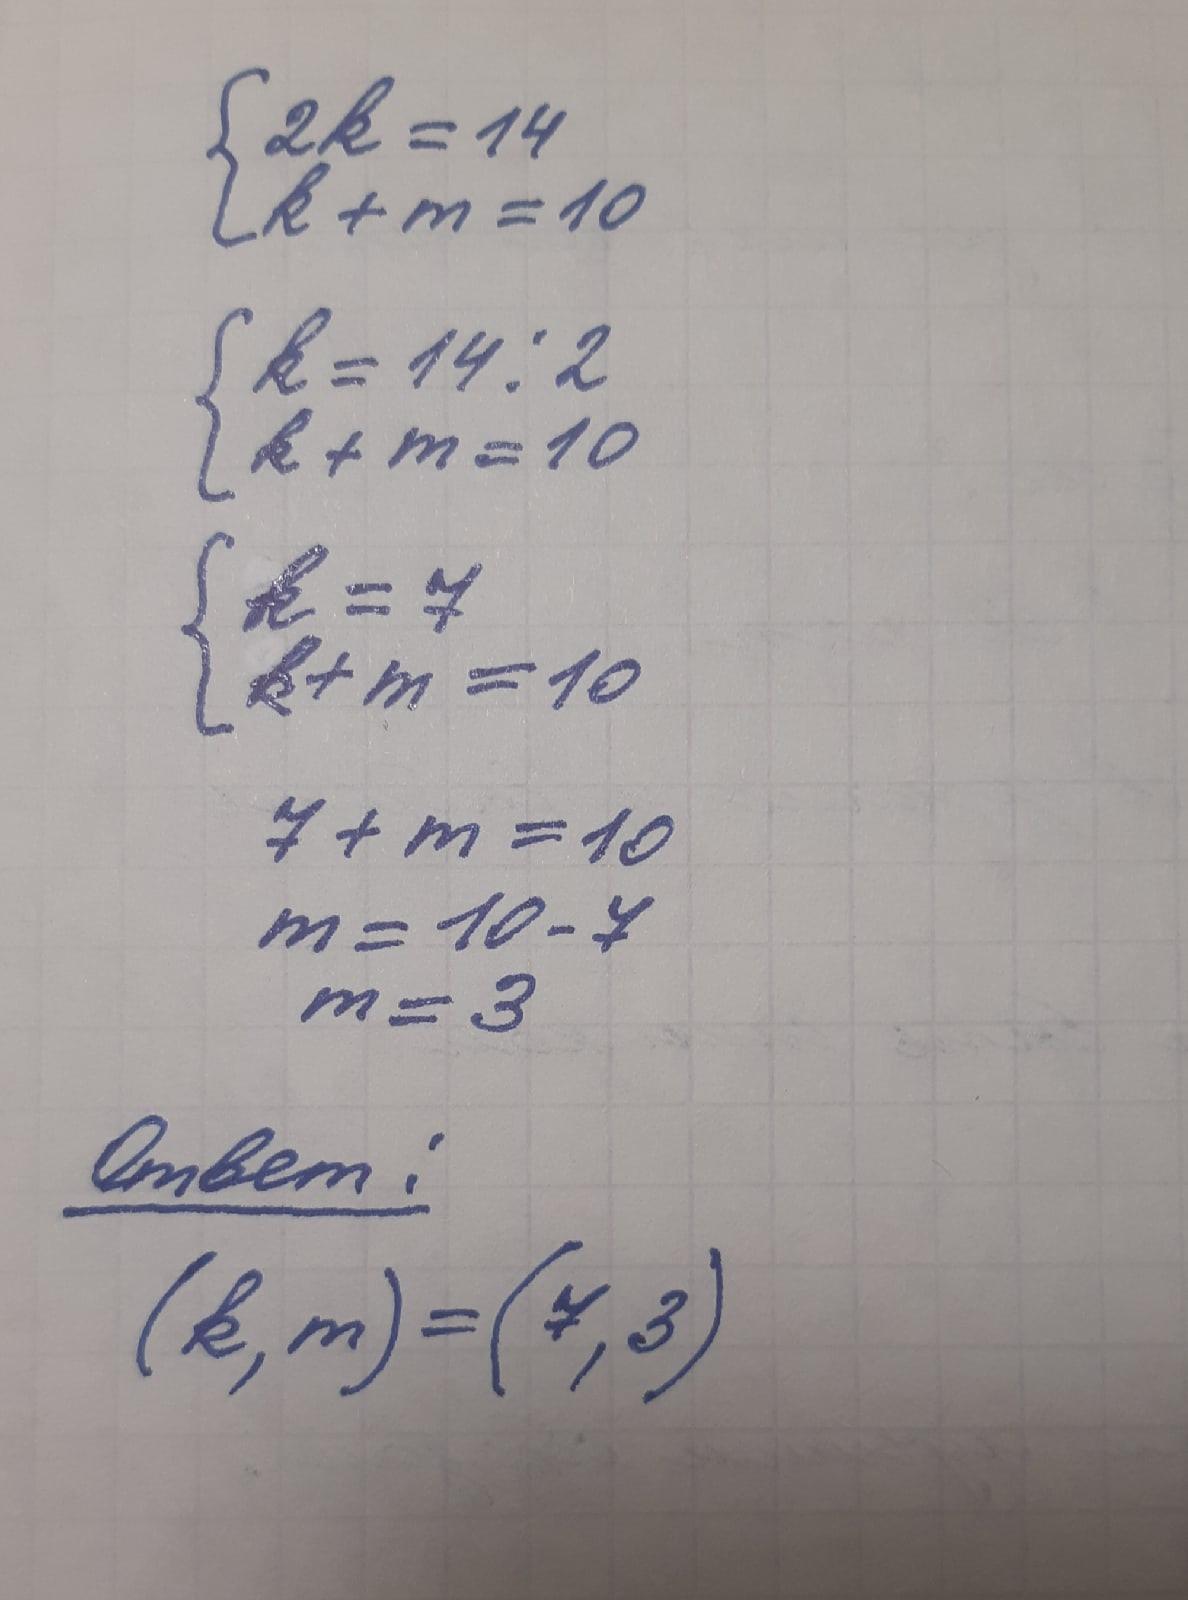 {2k = 14
k + m = 10
{k = 14 : 2
k + m = 10
{k = 7
k + m = 10
7 + m = 10
m = 10 - 7
m = 3
Ответ:
(k, m) = (7, 3)